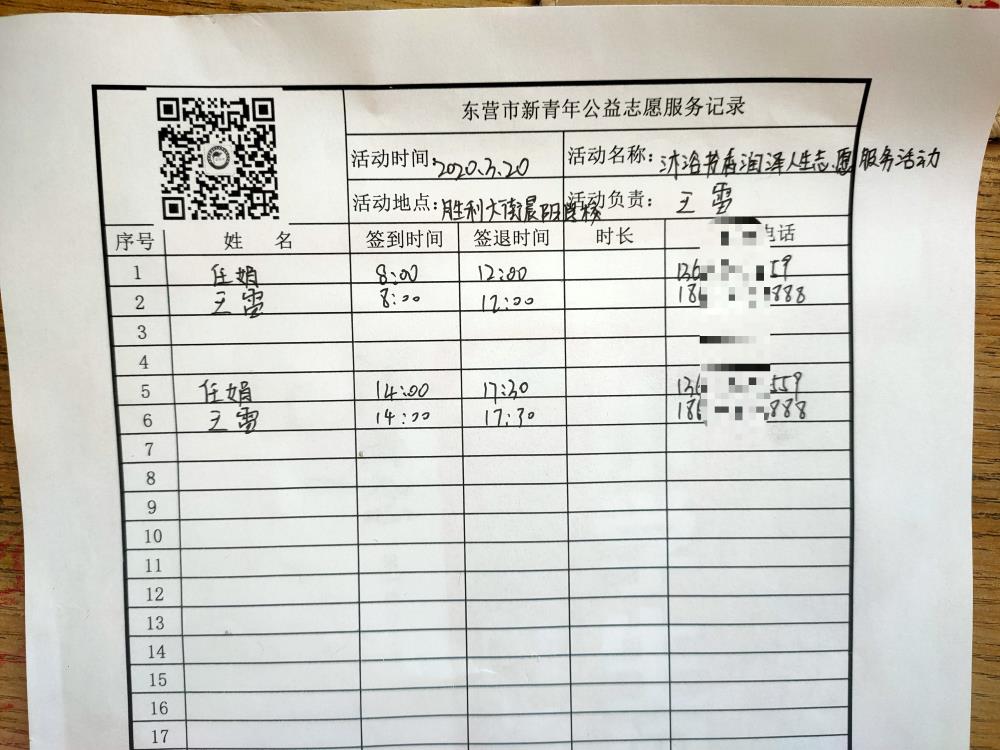 东营市新青年公益志愿服务记录
活动时间: 2020.3.20 活动名称: 沐浴书香润泽人生志愿服务活动
活动地点: 胜利大街晨阳学校 活动负责: 王雷
序号 姓 名 签到时间 签退时间 时长 电话
1 任娟 8:00 12:00 136 59
2 王雷 8:00 12:00 186 888
3
4
5 任娟 14:00 17:30 136 559
6 王雷 14:00 17:30 186 888
7
8
9
10
11
12
13
14
15
16
17